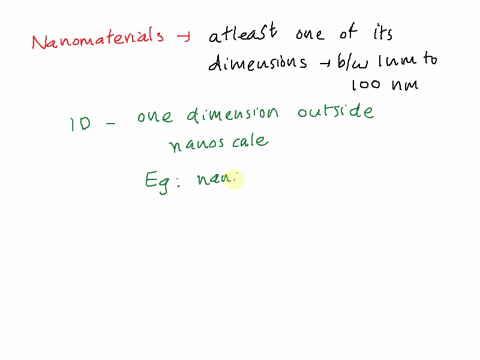 Nanomaterials → atleast one of its
dimensions → b/w 1nm to
100 nm
1D - one dimension outside
nanoscale
Eg: nan